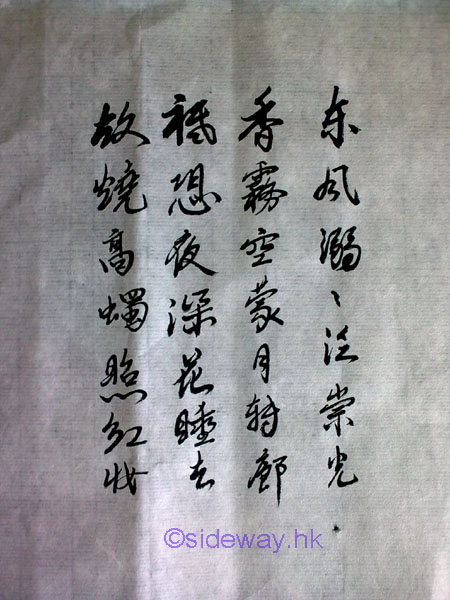 东风溺〻泛崇光
香霧空蒙月转廊
祗恐夜深花睡去
故燒高燭照红妆
©sideway.hk